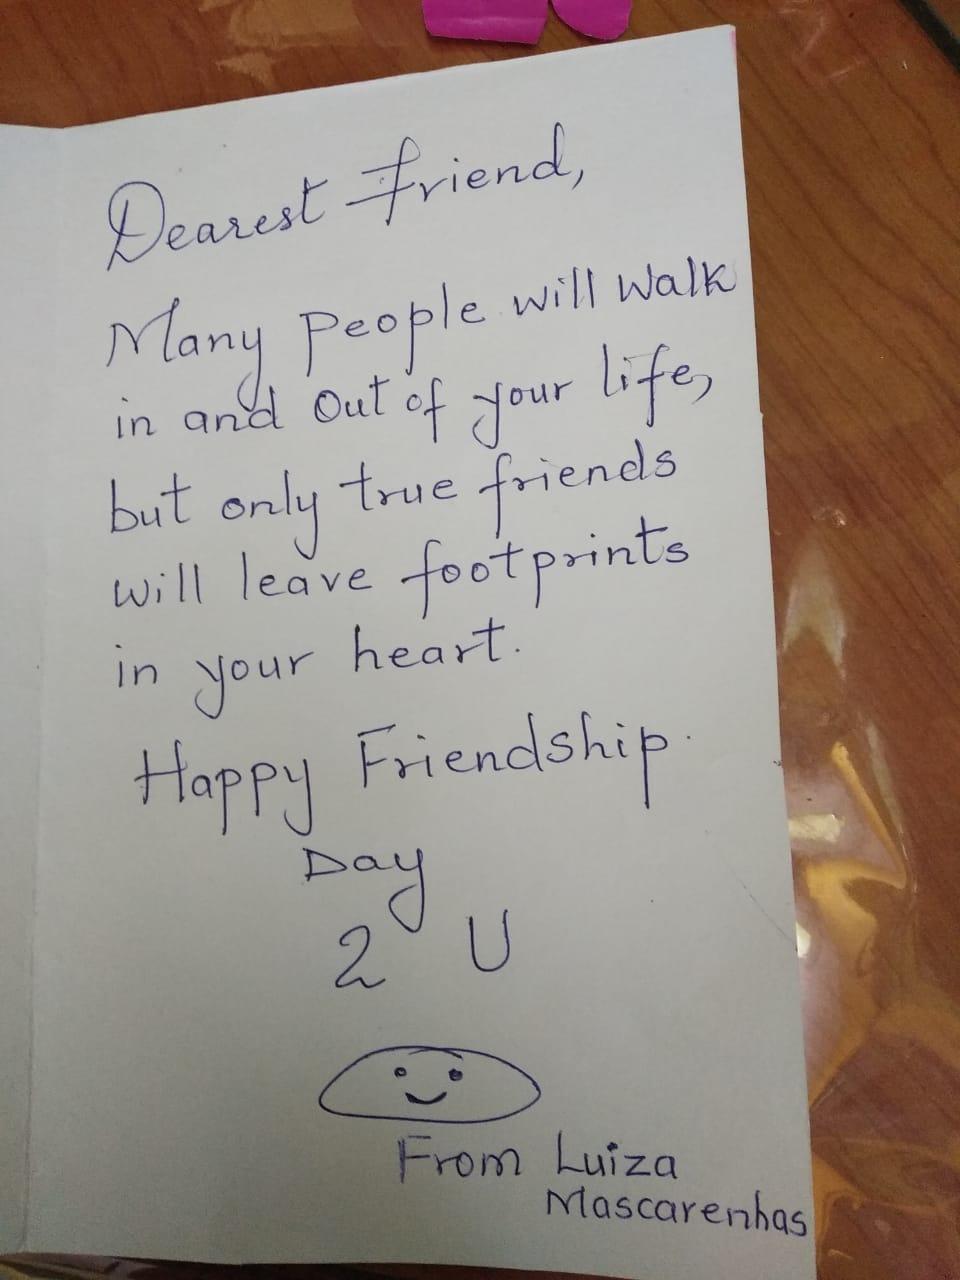 Dearest friend,
Many People will walk
in and Out of your life,
but only true friends
will leave footprints
in your heart.
Happy Friendship
Day
2 U
From Luiza
Mascarenhas